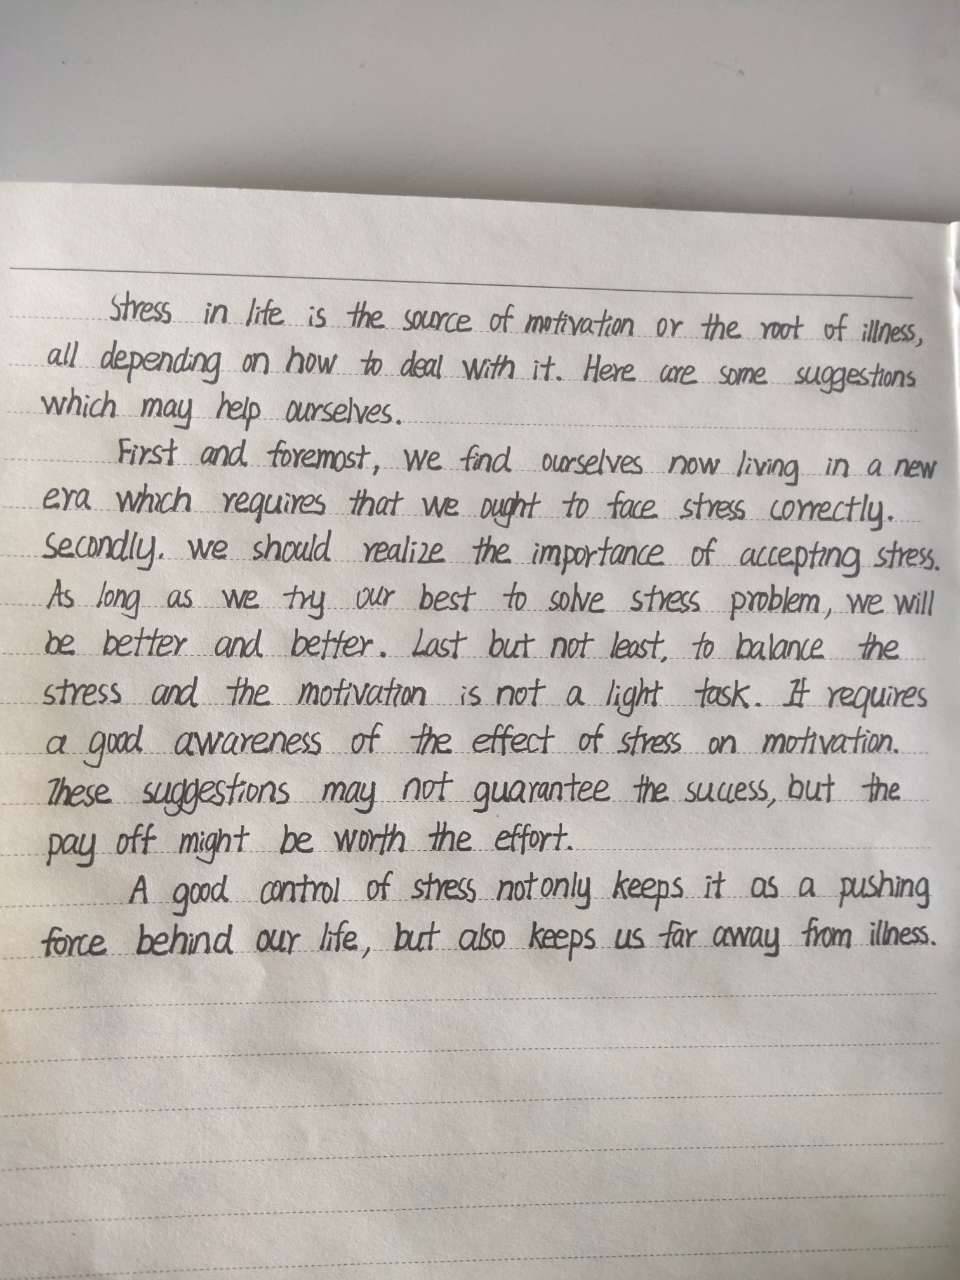 Stress in life is the source of motivation or the root of illness,
all depending on how to deal with it. Here are some suggestions
which may help ourselves.
First and foremost, we find ourselves now living in a new
era which requires that we ought to face stress correctly.
Secondly. we should realize the importance of accepting stress.
As long as we try our best to solve stress problem, we will
be better and better. Last but not least, to balance the
stress and the motivation is not a light task. It requires
a good awareness of the effect of stress on motivation.
These suggestions may not guarantee the success, but the
pay off might be worth the effort.
A good control of stress not only keeps it as a pushing
force behind our life, but also keeps us far away from illness.